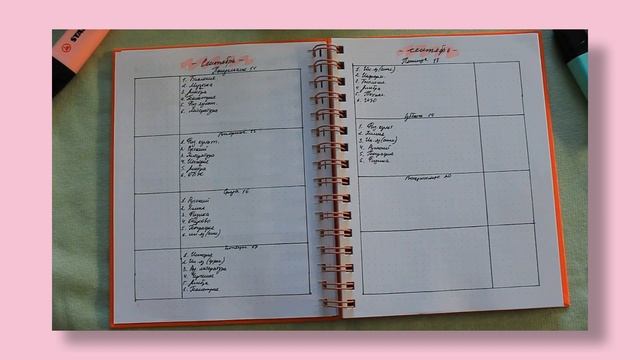 Сентябрь
Понедельник 14
1. Биология
2. Музыка
3. Алгебра
4. Геометрия
5. Физ. культ.
6. Литература
Вторник 15
1. Физ. культ.
2. Русский
3. Литература
4. История
5. Алгебра
6. ОБЖ
Среда 16
1. Русский
2. Химия
3. Физика
4.
5. География
6. Ин. яз (англ)
Четверг 17
1. История
2. Ин. яз
3. литература
4. Черчение
5. Алгебра
6. Геометрия
сентябрь
Пятница 18
1. Ин. яз (англ)
2. Информ.
3. Биология
4. Алгебра
5.
6.
Суббота 19
1. Физ. культ
2. Химия
3. Ин. яз (англ)
4. Русский
5. География
6. Физика
Воскресенье 20
STA